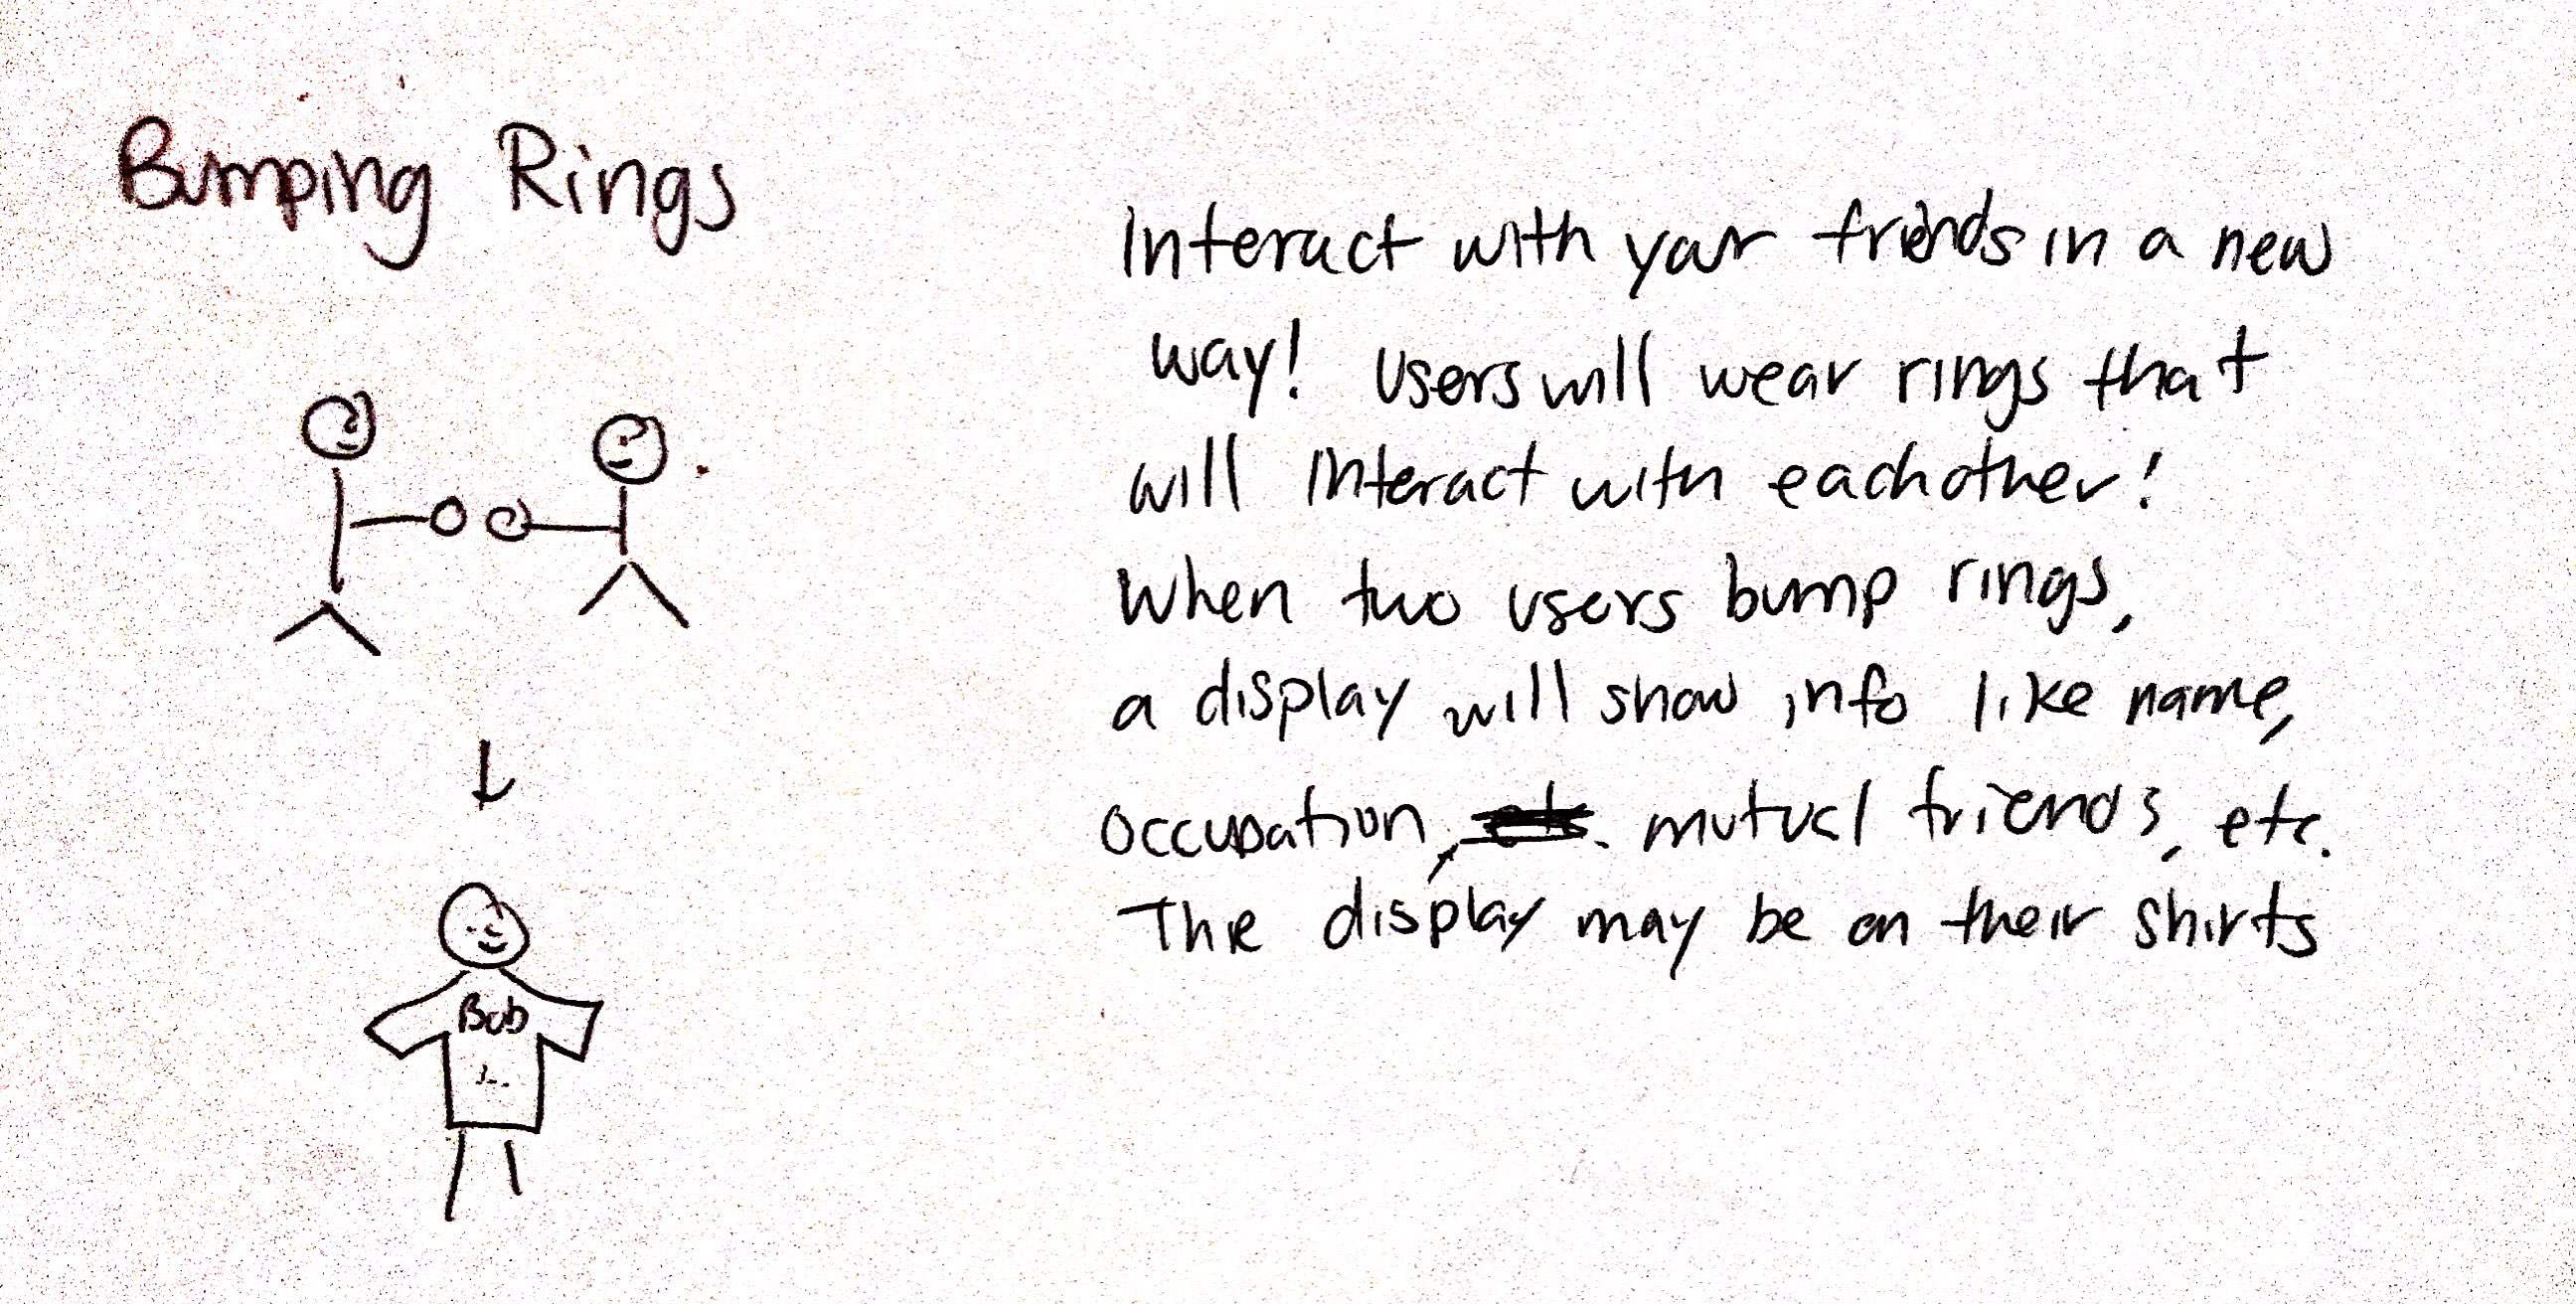 Bumping Rings
Interact with your friends in a new
way! Users will wear rings that
will interact with eachother!
When two users bump rings,
a display will show info like name,
occupation, etc. mutual friends, etc.
The display may be on their shirts
Bob